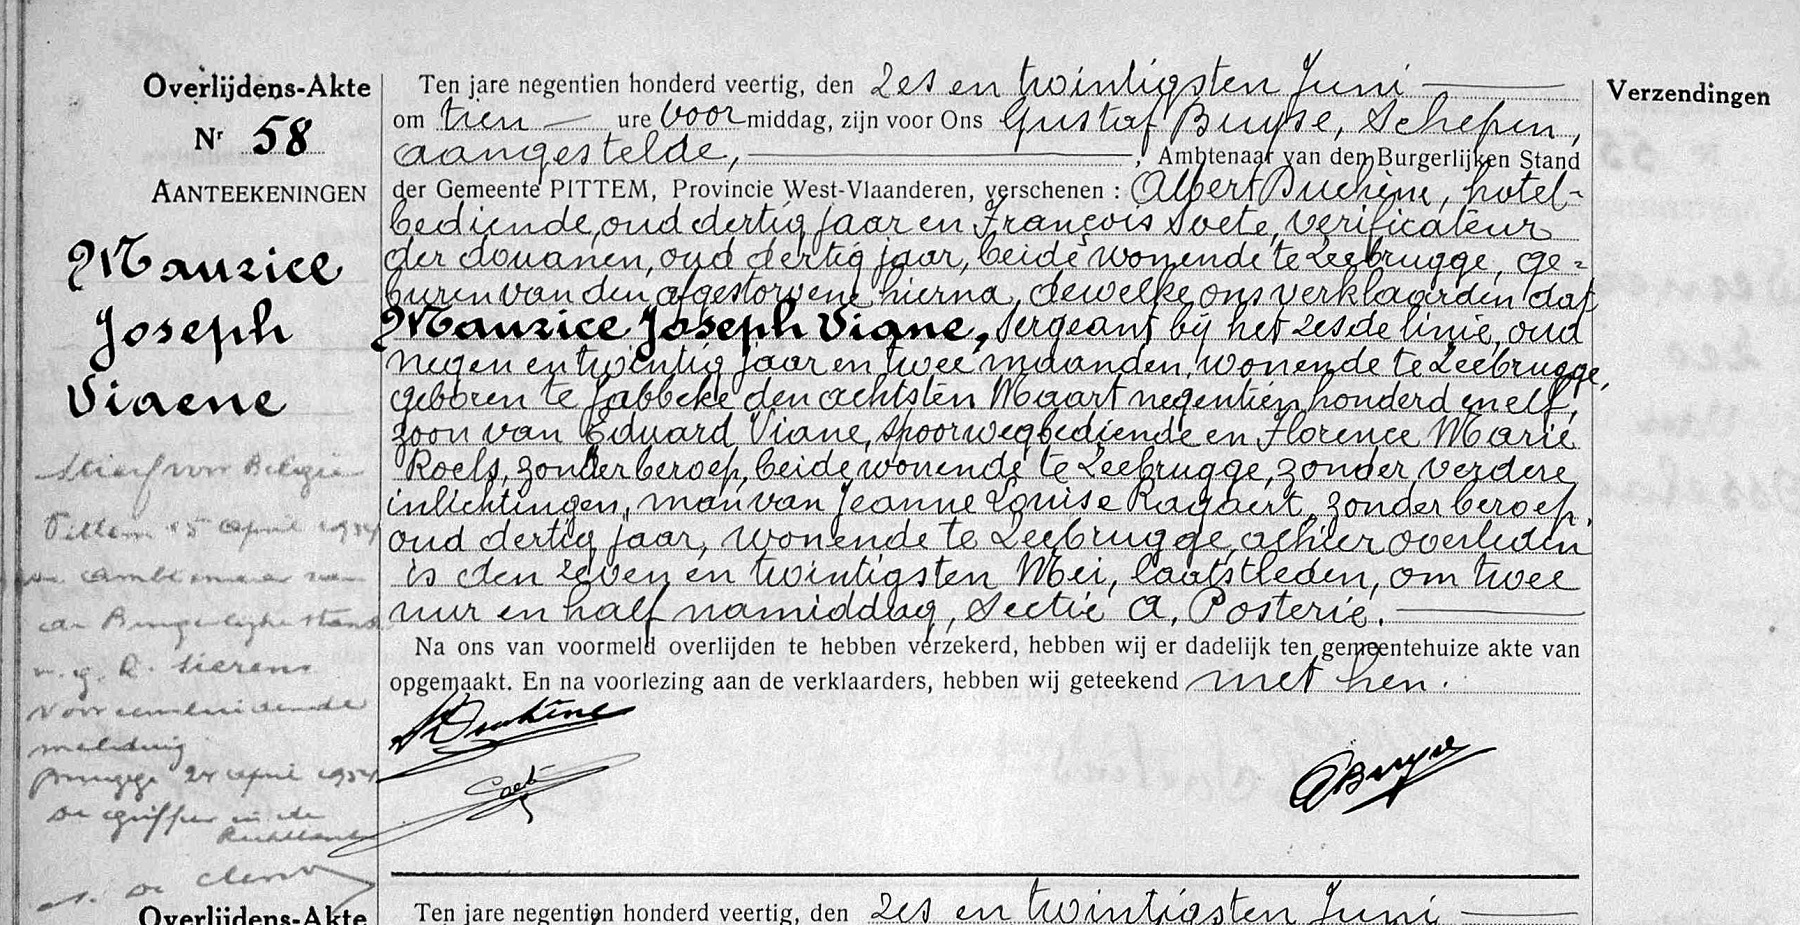 Overlijdens-Akte
Nr 58
AANTEEKENINGEN
Maurice
Joseph
Viaene
Stierf voor België
Pittem 15 april 1954
De ambtenaar van
de Burgerlijke stand
w. g. R. Sierens
Voor eensluidende
melding
Brugge 24 april 1954
De griffier
Ten jare negentien honderd veertig, den zes en twintigsten Juni
om tien ure voor middag, zijn voor Ons Gustaf Buyse, Schepen,
aangestelde, , Ambtenaar van den Burgerlijken Stand
der Gemeente PITTEM, Provincie West-Vlaanderen, verschenen : Albert Duchêne, hotel-
bediende, oud dertig jaar en François Soete, verificateur
der douanen, oud dertig jaar, beide wonende te Zeebrugge, ge-
buren van den afgestorvene hierna, dewelke ons verklaarden dat
Maurice Joseph Viane, sergeant bij het zesde linie, oud
negen en twintig jaar en twee maanden, wonende te Zeebrugge,
geboren te Jabbeke den achtsten Maart negentien honderd en elf,
zoon van Eduard Viane, spoorwegbediende en Florence Marie
Roels, zonder beroep, beide wonende te Zeebrugge, zonder verdere
inlichtingen, man van Jeanne Louise Ragaert, zonder beroep,
oud dertig jaar, wonende te Zeebrugge, achier overleden
is den zeven en twintigsten Mei, laatstleden, om twee
uur en half namiddag, Sectie A, Posterie.
Na ons van voormeld overlijden te hebben verzekerd, hebben wij er dadelijk ten gemeentehuize akte van
opgemaakt. En na voorlezing aan de verklaarders, hebben wij geteekend met hen.
Duchêne
Soete
GBuyse
Verzendingen
Overlijdens-Akte
Ten jare negentien honderd veertig, den zes en twintigsten Juni